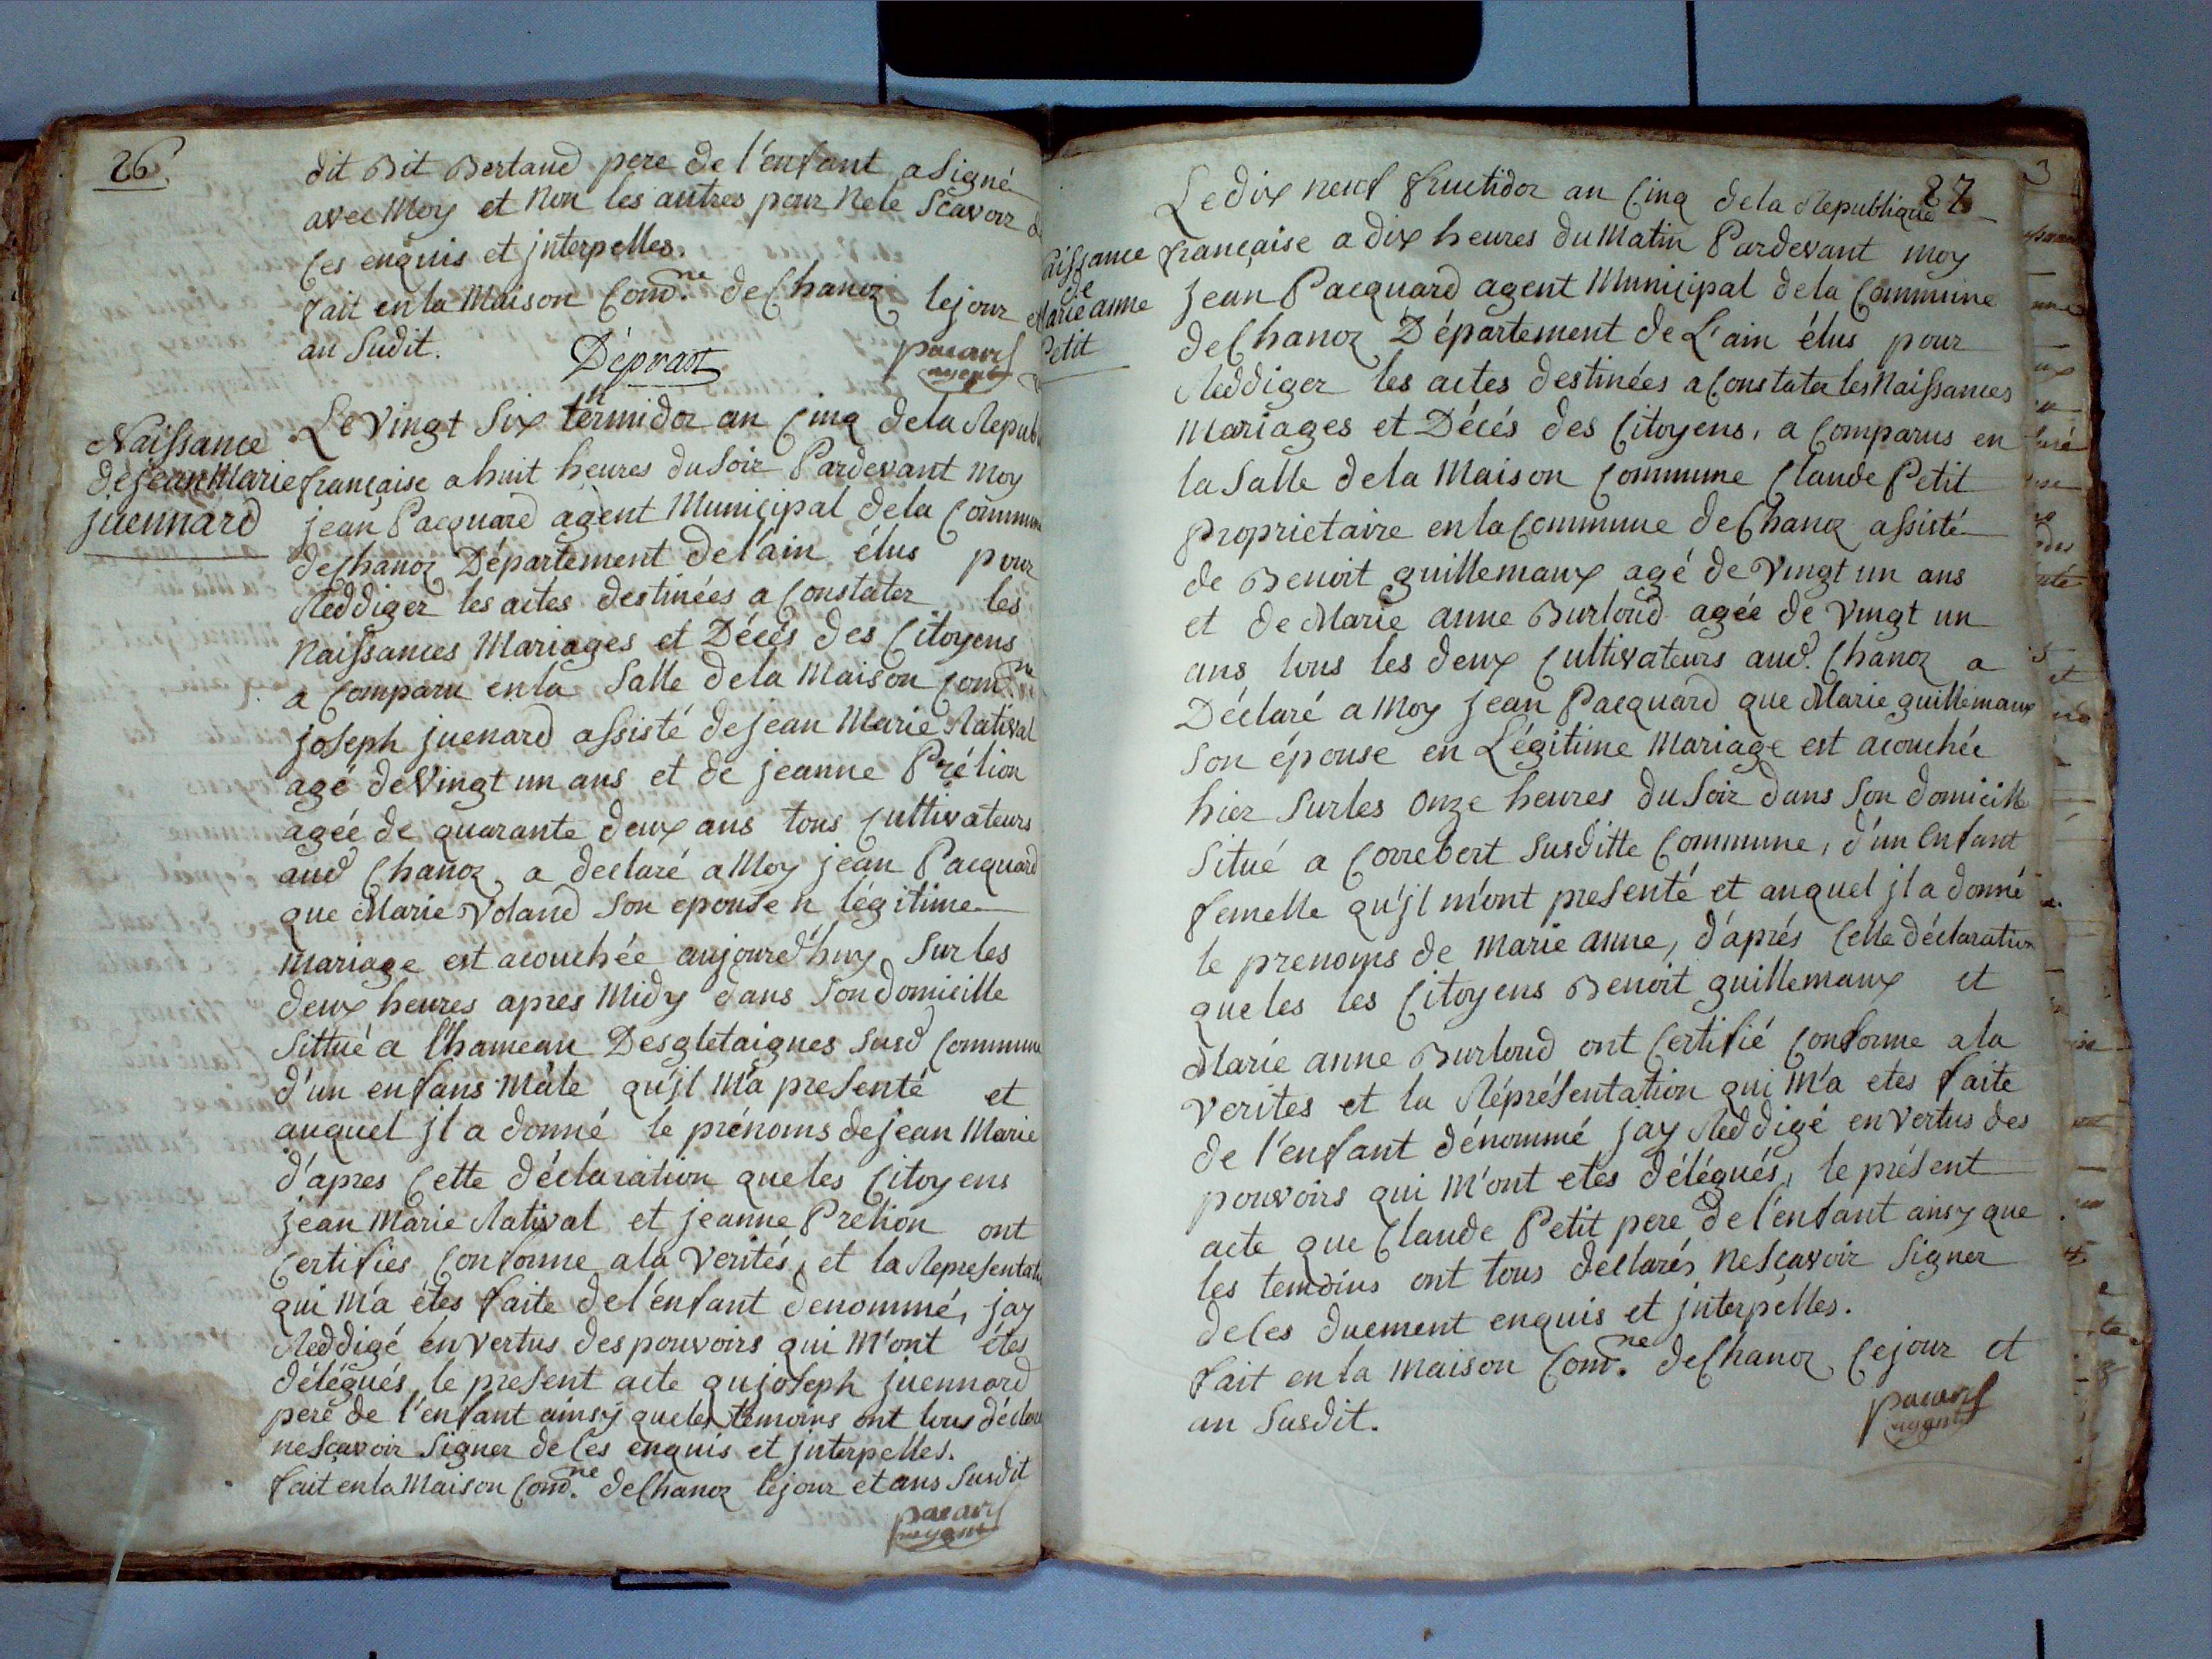 26.
dit Bit Bertaud pere de l'enfant a signé
avec Moy et Non les autres pour Nele Scavoir
Ces enquis et jnterpelles.
fait en la Maison Com.ne de Chanoz le jour et
an Sudit.
Déprast
pacard
agent
Naissance
de jean Marie
juennard
Le vingt Six termidor an Cinq de la Repub
française a huit heures du Soir Pardevant moy
jean Pacquard agent Municipal de la Commune
de Chanoz Département de l'ain élus pour
Reddiger les actes destinées a Constater les
Naissances Mariages et Décés des Citoyens
a Comparu en la Salle de la Maison Com.ne
joseph juenard assisté de jean Marie Ratival
agé de Vingt un ans et de jeanne Prélion
agée de quarante deux ans tous Cultivateurs
aud Chanoz a declaré a Moy jean Pacquard
que Marie Voland Son epouse n légitime
mariage est acouchée aujourd'huy Sur les
deux heures apres Midy dans Son domicille
Sittué a l'hameau Desgletaignes Susd Commune
d'un enfans Mâle qu'jl M'a presenté et
auquel jl a donné le prénoms de jean Marie
d'apres Cette déclaration que les Citoyens
jean Marie Ratival et jeanne Prelion ont
Certifies Conforme a la Verités, et la Representati
qui M'a étes faite de l'enfant denommé, jay
Reddigé en vertus des pouvoirs qui M'ont étes
délégués le present acte qu joseph juennard
pere de l'enfant ainsy que les temoins ont tous déclaré
ne Scavoir Signer de Ces enquis et jnterpelles.
fait en la Maison Com.ne de Chanoz le jour et ans Susdit
pacard
agent
27
Naissance
de
Marie anne
Petit
Le dix neuf fructidor an Cinq de la Republique
française a dix heures du Matin Pardevant moy
jean Pacquard agent Municipal de la Commune
de Chanoz Département de L'ain élus pour
Reddiger les actes destinées a Constater les Naissances
Mariages et Décés des Citoyens, a Comparus en
la Salle de la Maison Commune Claude Petit
Proprietaire en la Commune de Chanoz assisté
de Benoit guillemaux agé de Vingt un ans
et de Marie anne Burloud agée de Vingt un
ans tous les deux Cultivateurs aud. Chanoz a
Déclaré a Moy jean Pacquard que Marie guillemaux
Son épouse en Légitime Mariage est acouchée
hier Sur les Onze heures du Soir dans Son domicille
Situé a Correbert Susditte Commune, d'un Enfant
femelle qu'jl m'ont presenté et auquel jl a donné
le prenoms de Marie anne, d'aprés Cette déclaration
que les les Citoyens Benoit guillemaux et
Marie anne Burloud ont Certifié Conforme a la
Verites et la Réprésentation qui M'a etes faite
de l'enfant dénommé jay Reddigé en vertus des
pouvoirs qui M'ont etés délégués, le présent
acte que Claude Petit pere de l'enfant ainsy que
les temoins ont tous declarés ne Scavoir Signer
de Ces duement enquis et jnterpelles.
fait en la Maison Com.ne de Chanoz Ce jour et
an Susdit.
pacard
agent
3